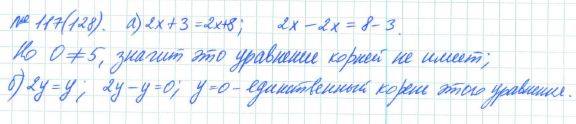 № 117(128). а) 2x + 3 = 2x+8; 2x - 2x = 8 - 3.
Но 0 ≠ 5, значит это уравнение корней не имеет;
б) 2y = y; 2y - y = 0; y = 0 - единственный корень этого уравнение.